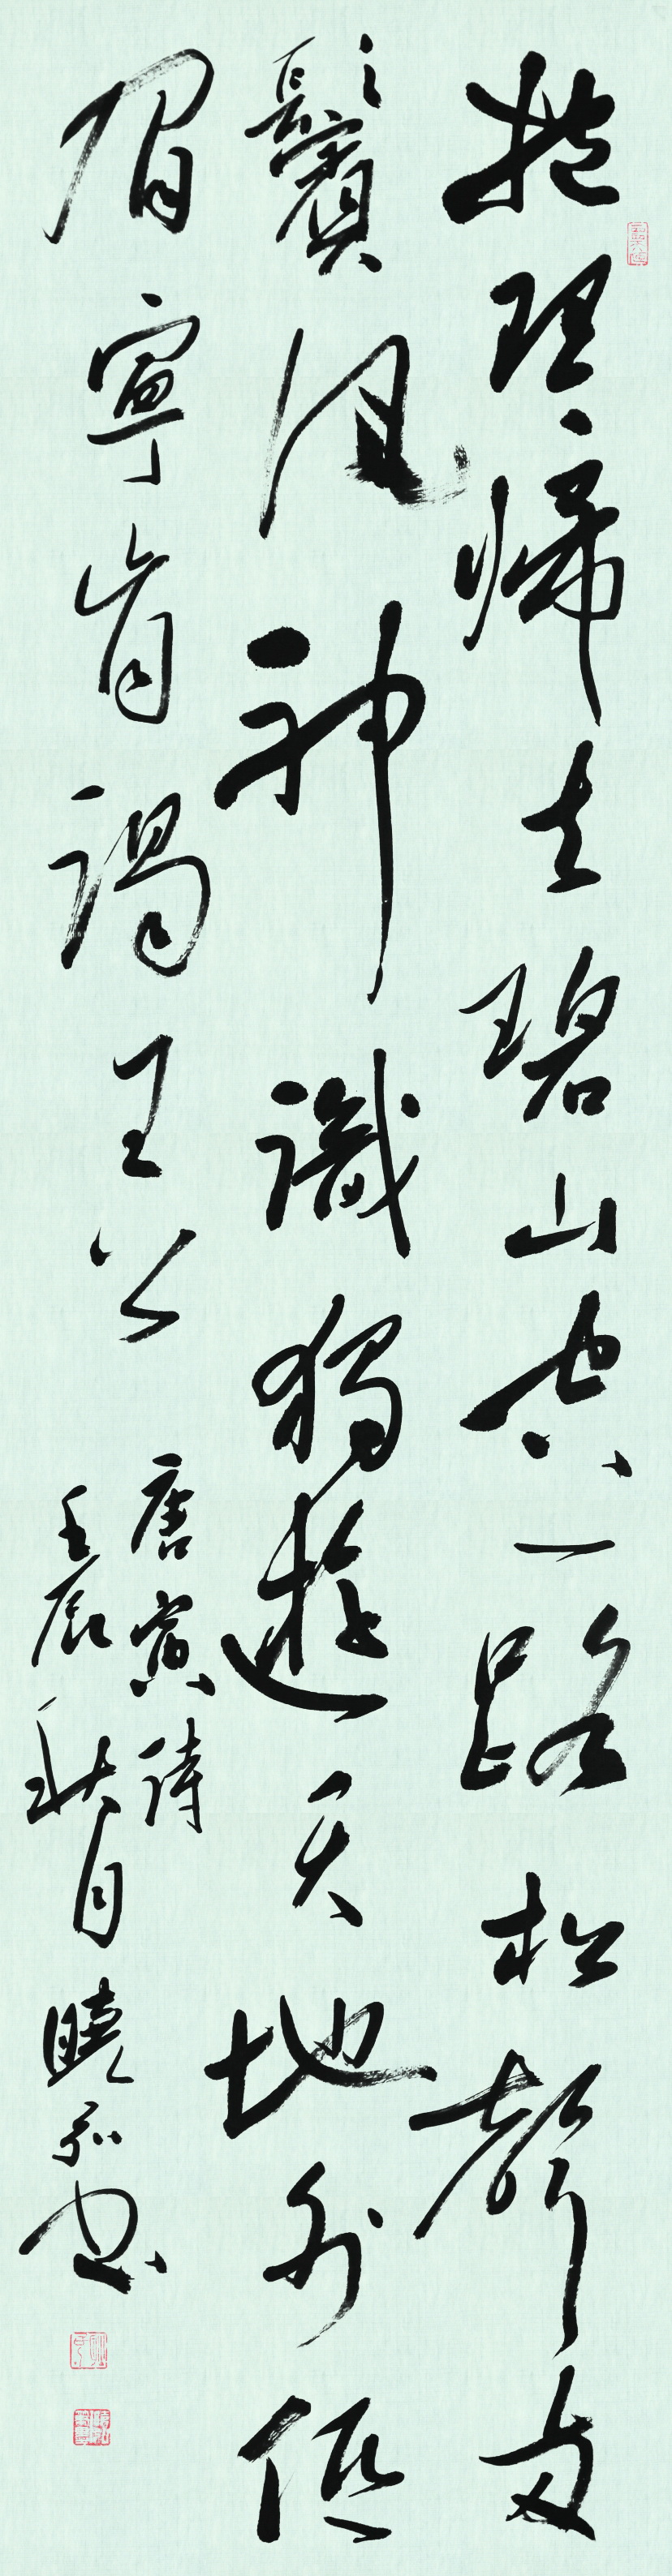 抱琴歸去碧山空一路松聲兩
鬢風神識獨遊天地外低
眉寧肯謁王公
唐寅詩
壬辰秋月曉弘書